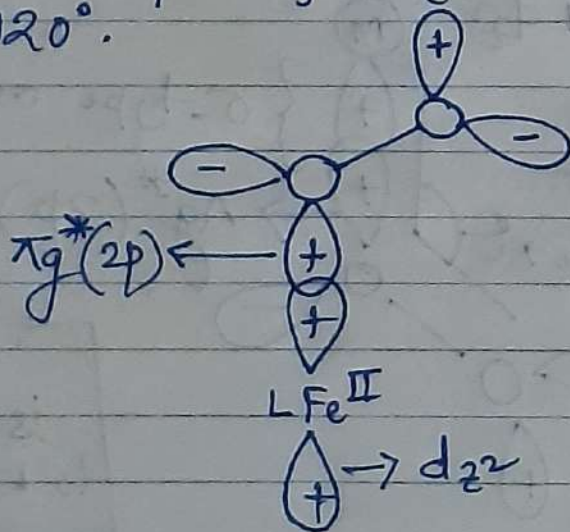 120°.
+
-
-
πg*(2p) ←
+
+
LFeᴵᴵ
+ → dz²